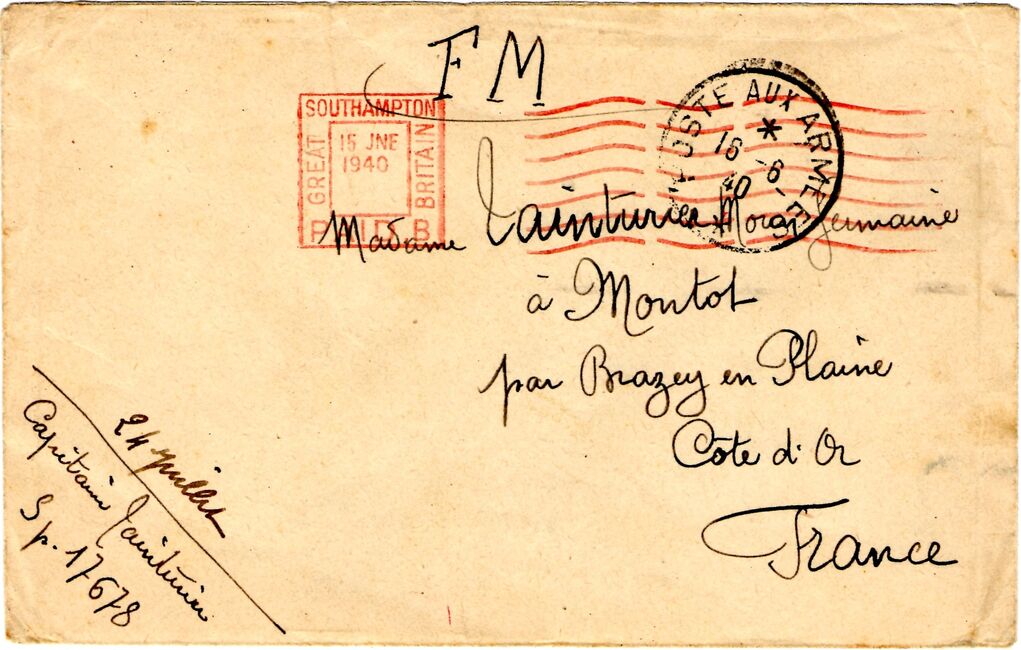 F M
SOUTHAMPTON
GREAT
15 JNE
1940
BRITAIN
PAID B
POSTE AUX ARMEES
*
16-6
40
*
Madame Tainturier Morey Germaine
à Montot
par Brazey en Plaine
Côte d'Or
France
24 juillet
Capitaine Tainturier
Sp. 17678